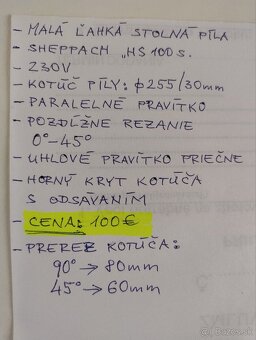 - MALÁ ĽAHKÁ STOLNÁ PÍLA
- SHEPPACH „HS 100 S.
- 230V
- KOTÚČ PÍLY: ϕ255/30mm
- PARALELNÉ PRAVÍTKO
- POZDĹŽNE REZANIE
0°-45°
- UHLOVÉ PRAVÍTKO PRIEČNE
- HORNÝ KRYT KOTÚČA
S ODSÁVANÍM
- CENA: 100€
- PREREZ KOTÚČA:
90° → 80mm
45° → 60mm
bazos.sk